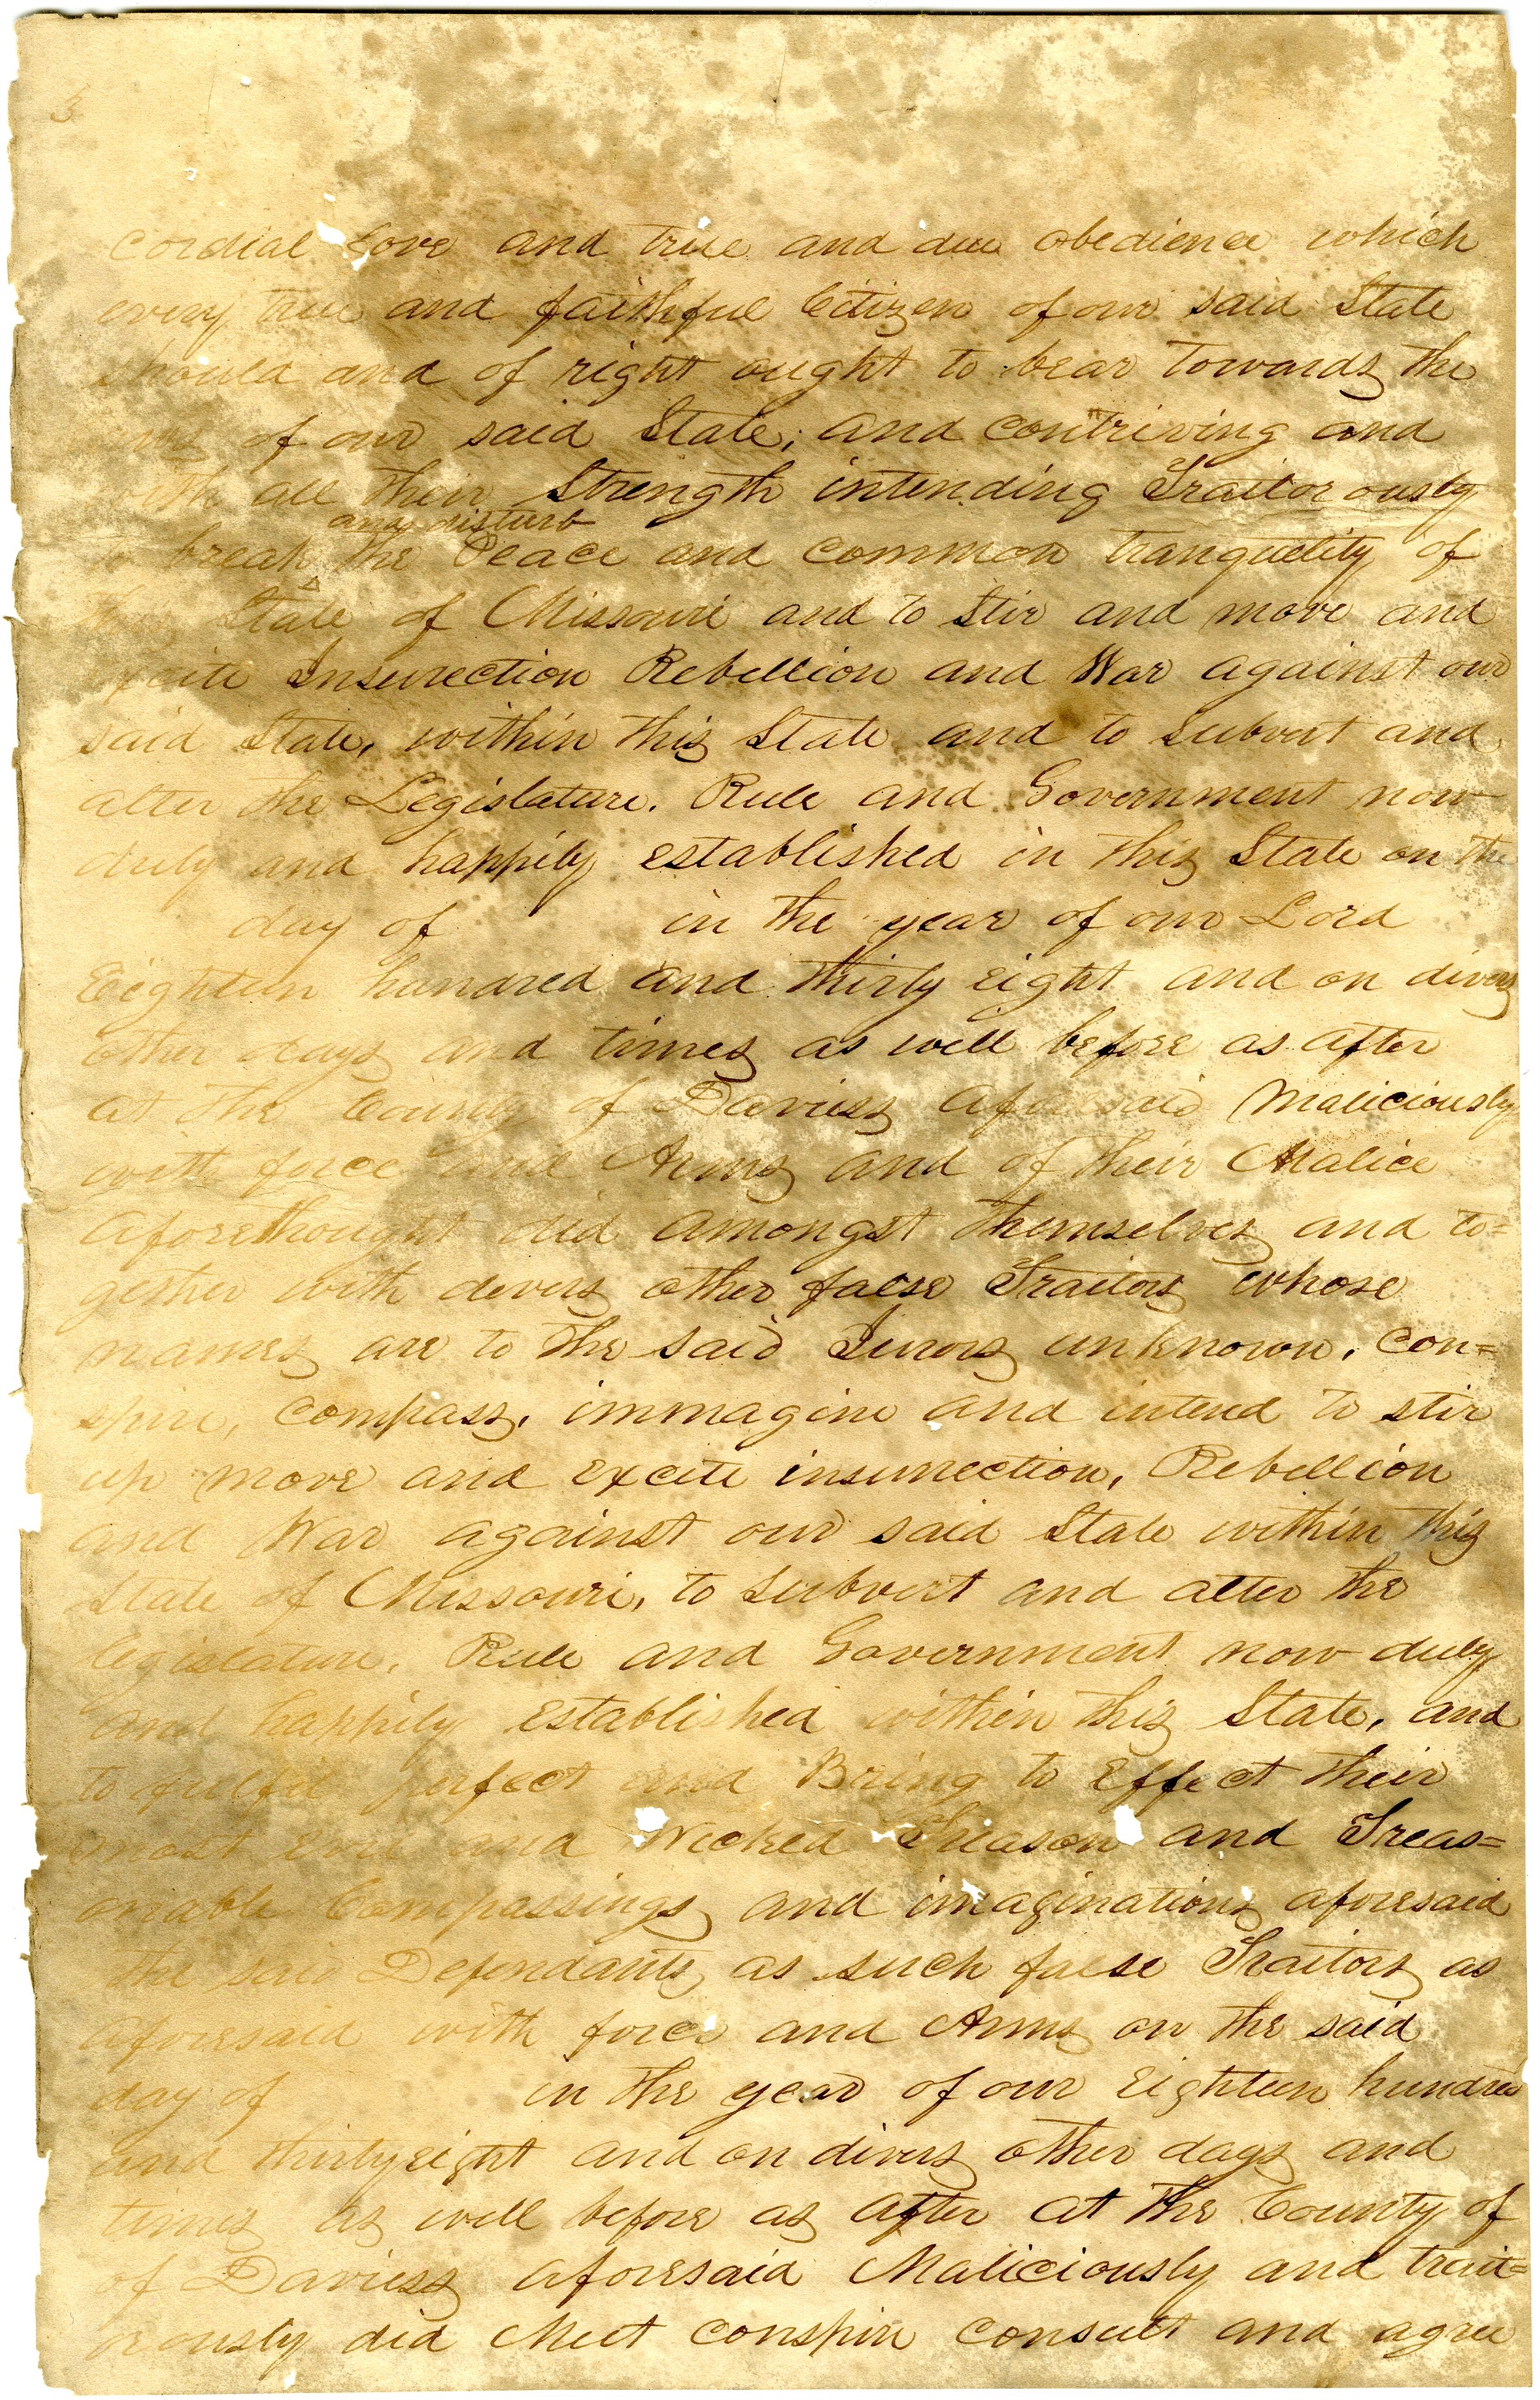 3
cordial love and true and due obedience which
every true and faithful Citizen of our said State
should and of right ought to bear towards the
of our said State; and contriving and
with all their Strength intending Traitorously
and disturb
to break the Peace and common tranquility of
this State of Missouri and to Stir and move and
excite Insurrection Rebellion and War against our
said State, within this State and to Subvert and
alter the Legislature. Rule and Government now
duly and happily established in this State on the
day of in the year of our Lord
Eighteen hundred and thirty eight and on divers
other days and times as well before as after
at the County of Daviess aforesaid Maliciously
with force and Arms and of their Malice
aforethought did amongst themselves and to=
gether with devers other false Traitors whose
names are to the said Jurors unknown, con=
spire, compass, immagine and intend to stir
up move and excite insurrection, Rebellion
and War against our said State within this
State of Missouri, to Subvert and alter the
legislature, Rule and Government now duly
and happily established within this State, and
to fulfil perfect and Bring to Effect their
most evil and Wicked Treason and Treas=
onable Compassings and imaginations aforesaid
the said Defendants as such false Traitors as
aforesaid with force and Arms on the said
day of in the year of our Eighteen hundred
and thirty eight and on divers other days and
times as well before as after at the County of
of Daviess aforesaid Maliciously and trait=
orously did Meet conspire consult and agree